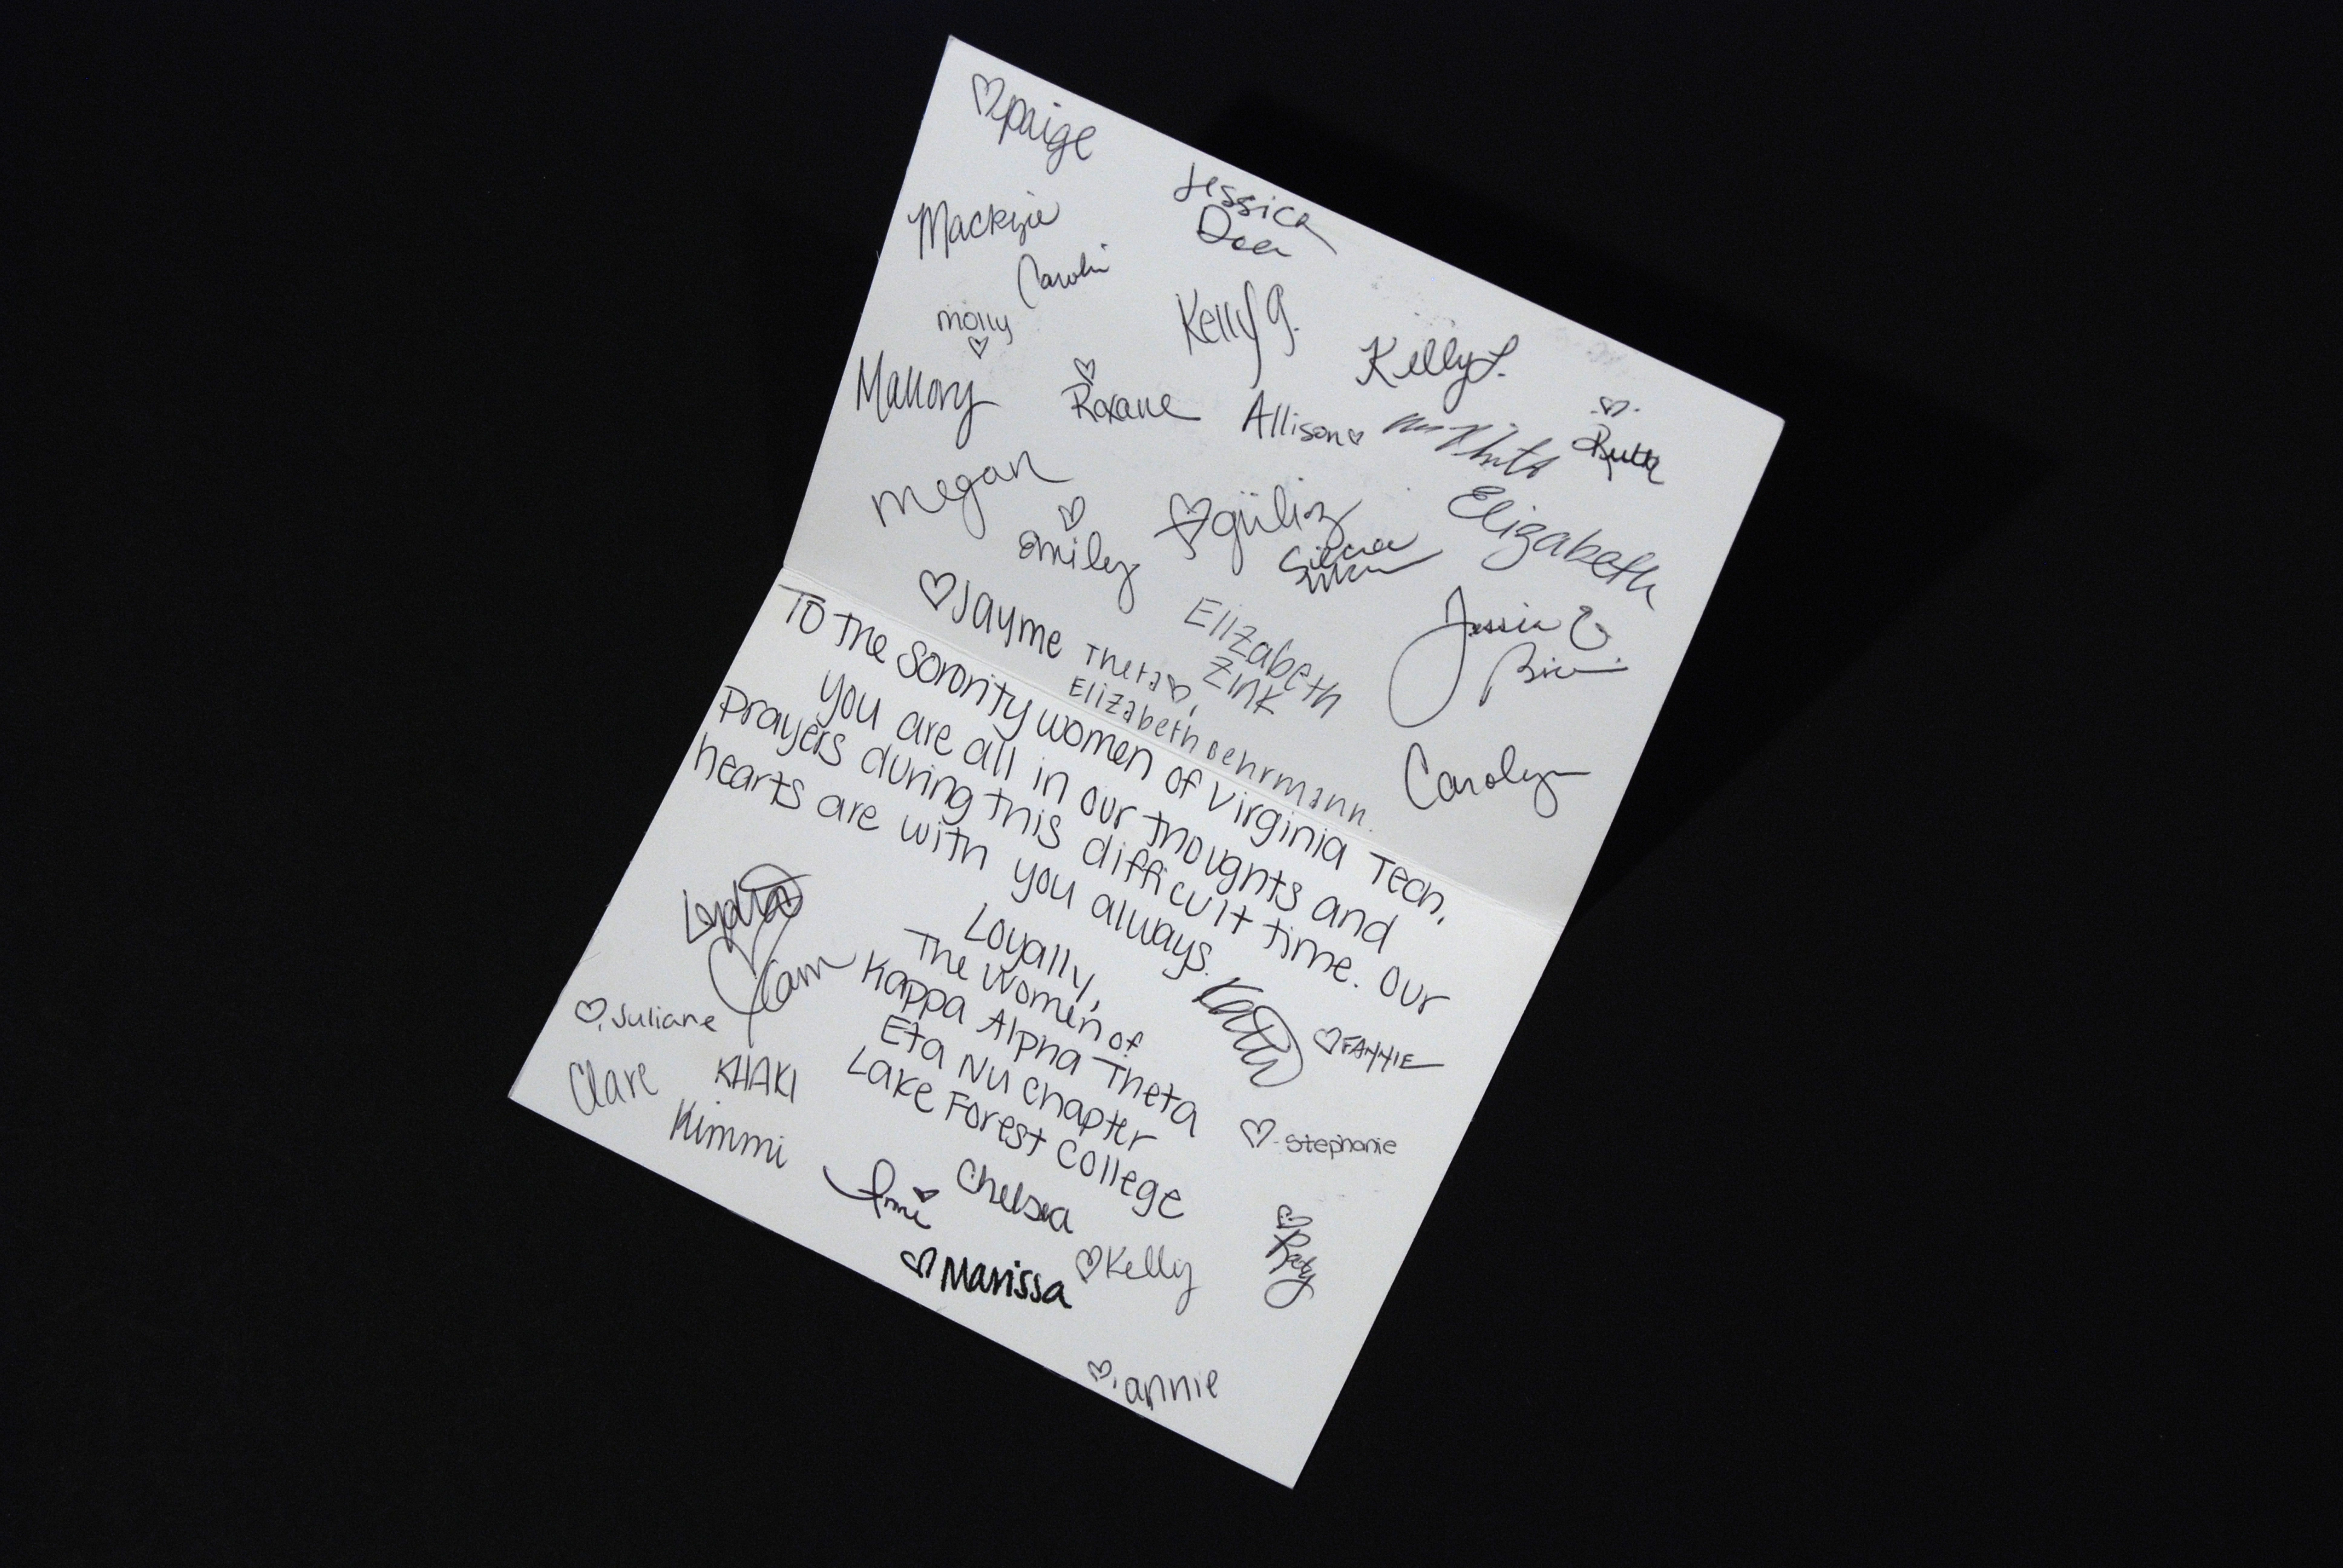 ♡ paige
Jessica
Mackzie
molly
♡
Kelly G.
Kelly L.
Mallory
♡
Roxane
Allison ♡
♡
Ruth
megan
♡
emily
♡ güliz
Elizabeth
♡ Jayme
Elizabeth
Zink
Theta ♡,
Elizabeth Behrmann.
Carolyn
To the sorority women of Virginia Tech,
you are all in our thoughts and
prayers during this difficult time. Our
hearts are with you always.
Loyally,
The Women of
Kappa Alpha Theta
Eta Nu Chapter
Lake Forest College
Lydia
♡ Cam
♡, Juliane
Clare
KHAKI
Kimmi
♡ FANNIE
♡ - Stephanie
Chelsea
♡ Marissa
♡ Kelly
♡
Katy
♡, annie